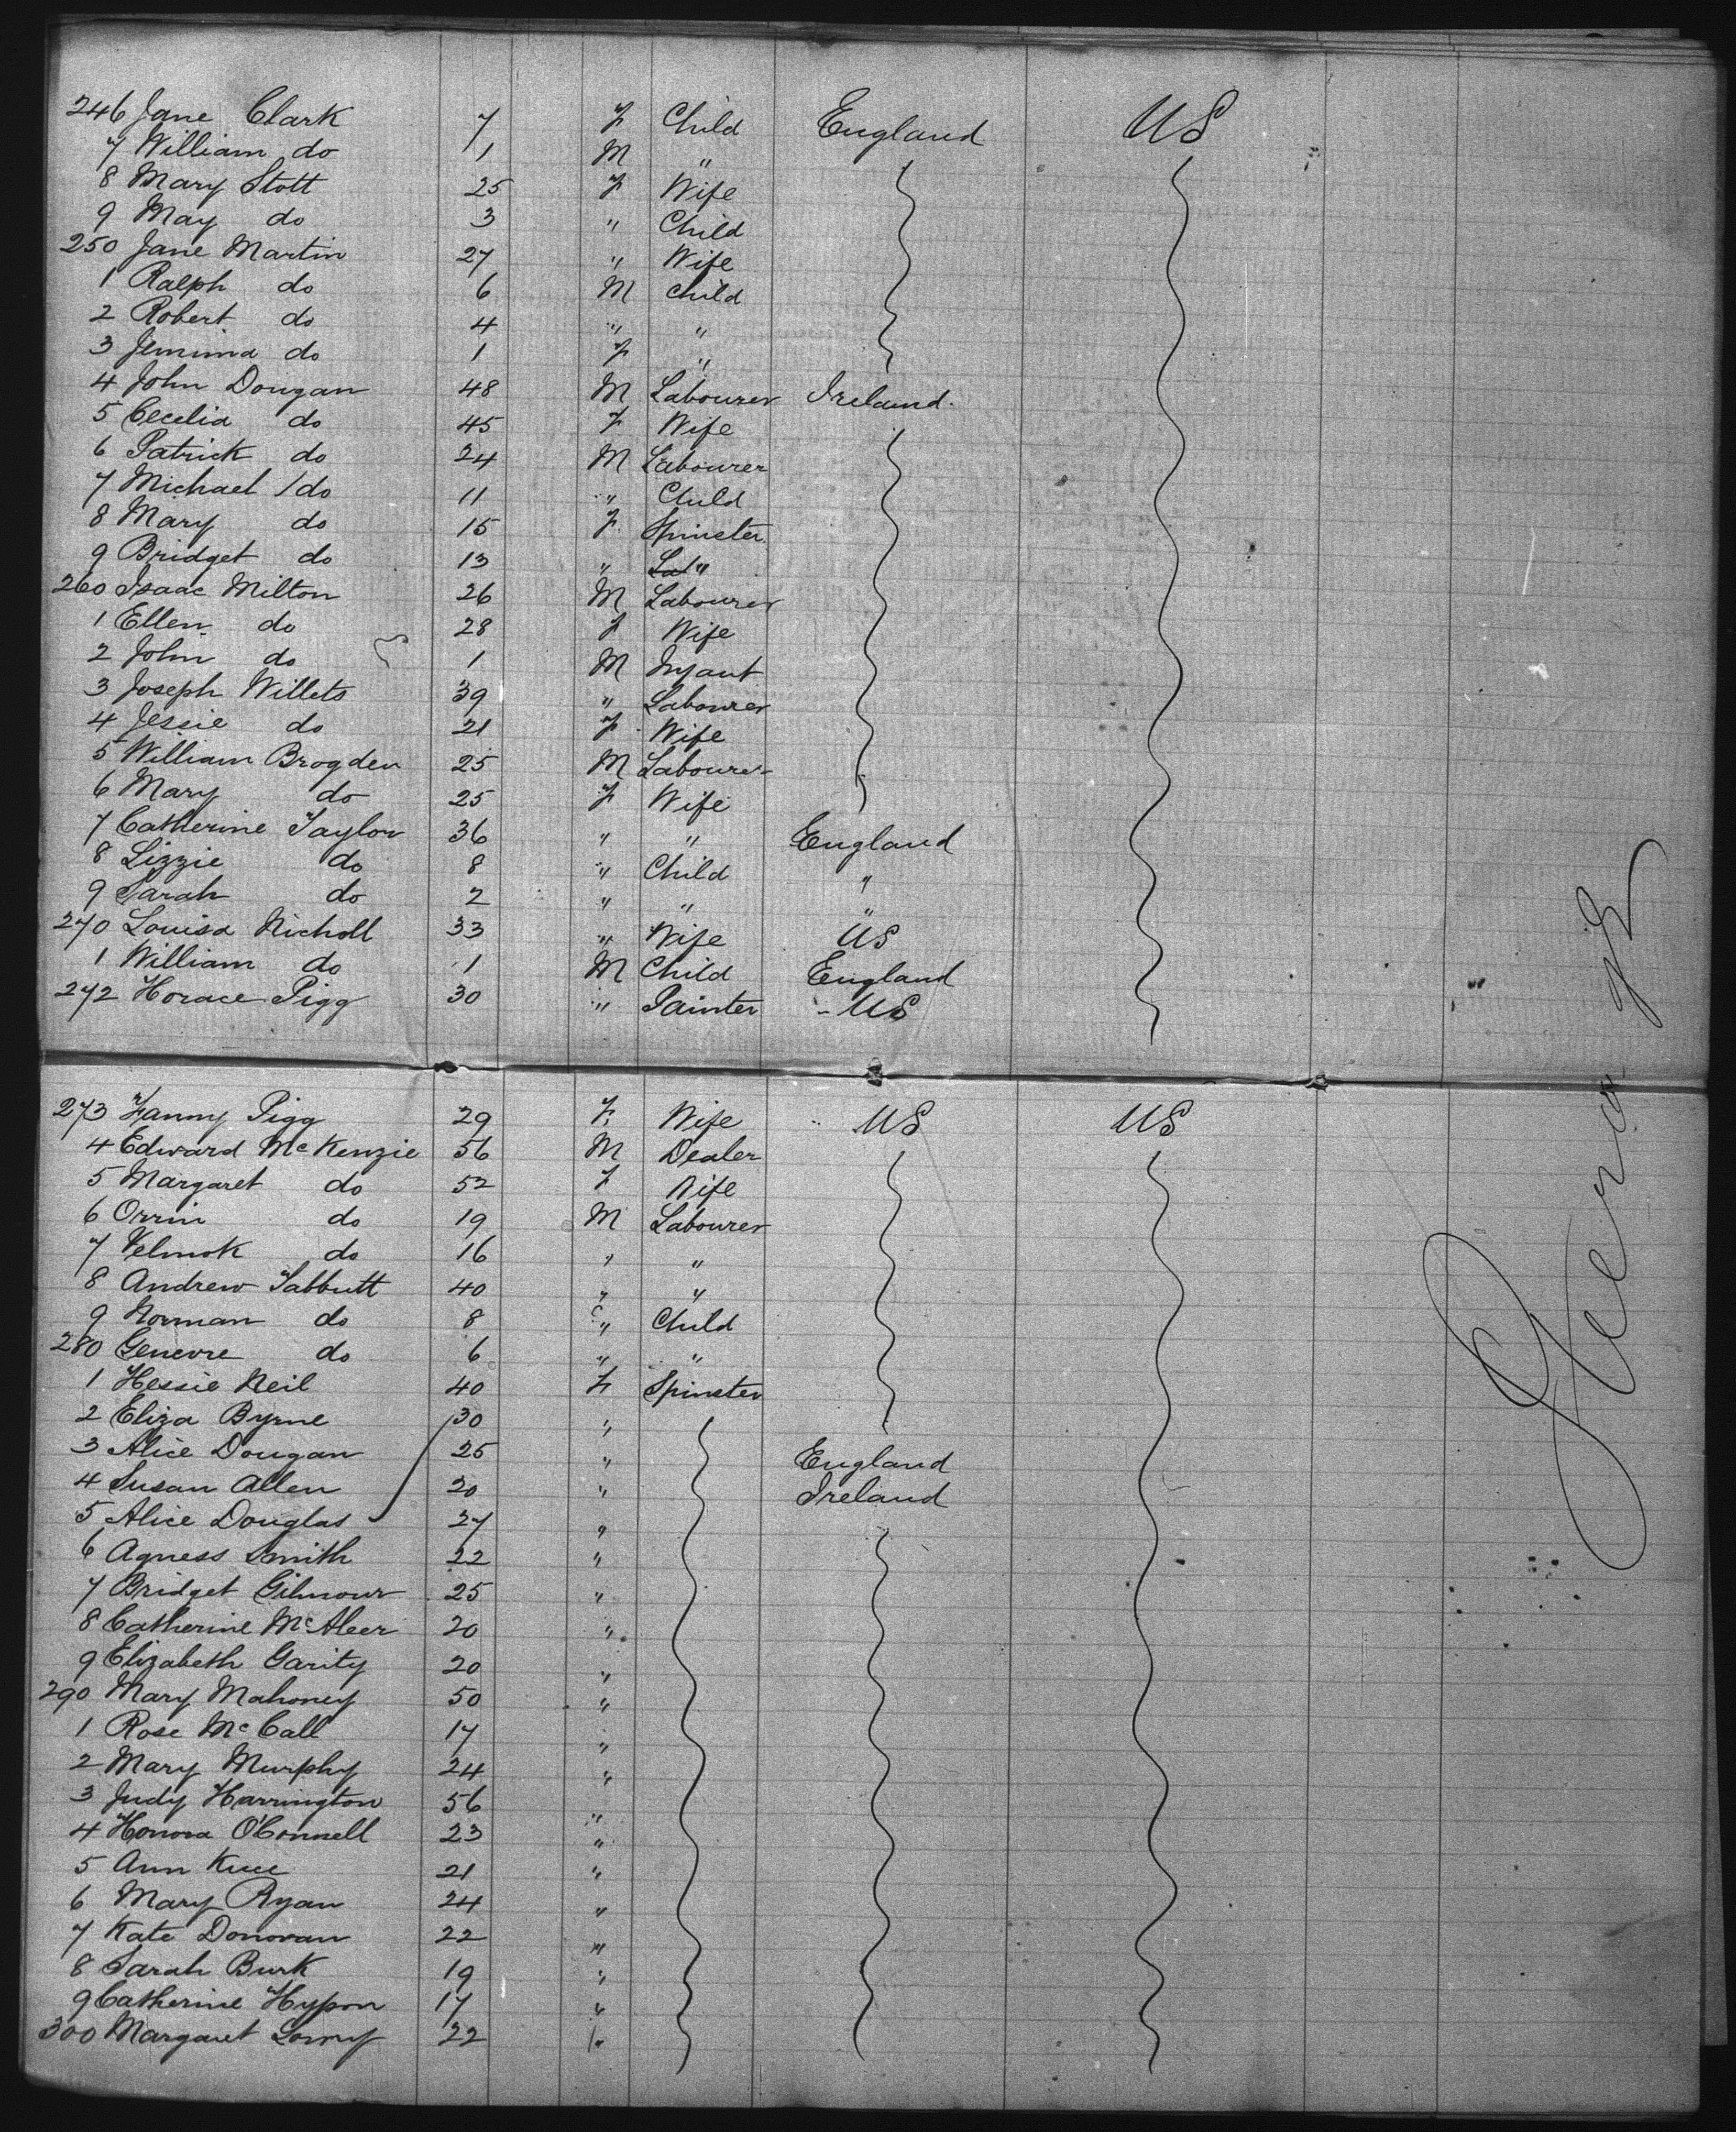 246 Jane Clark 7 F Child England US
7 William do 1 M "
8 Mary Stott 25 F Wife
9 May do 3 " Child
250 Jane Martin 27 " Wife
1 Ralph do 6 M Child
2 Robert do 4 " "
3 Jemima do 1 F "
4 John Dougan 48 M Labourer Ireland.
5 Cecelia do 45 F Wife
6 Patrick do 24 M Labourer
7 Michael do 11 " Child
8 Mary do 15 F Spinster
9 Bridget do 13 " "
260 Isaac Milton 26 M Labourer
1 Ellen do 28 F Wife
2 John do 1 M Infant
3 Joseph Willets 39 " Labourer
4 Jessie do 21 F Wife
5 William Brogden 25 M Labourer
6 Mary do 25 F Wife
7 Catherine Taylor 36 " " England
8 Lizzie do 8 " Child "
9 Sarah do 2 " " "
270 Louisa Nicholl 33 " Wife US
1 William do 1 M Child England
272 Horace Pigg 30 " Painter US
273 Fanny Pigg 29 F Wife US US
4 Edward McKenzie 56 M Dealer
5 Margaret do 52 F Wife
6 Orrin do 19 M Labourer
7 do 16 " "
8 Andrew Tabbutt 40 " "
9 Norman do 8 " Child
280 Genevre do 6 " "
1 Hessie Neil 40 F Spinster
2 Eliza Byrne 30 "
3 Alice Dougan 25 " England
4 Susan Allen 20 " Ireland
5 Alice Douglas 27 "
6 Agness Smith 22 "
7 Bridget Gilmour 25 "
8 Catherine McAleer 20 "
9 Elizabeth Garity 20 "
290 Mary Mahoney 50 "
1 Rose McCall 17 "
2 Mary Murphy 24 "
3 Judy Harrington 56 "
4 Honora O'Connell 23 "
5 Ann 21 "
6 Mary Ryan 24 "
7 Kate Donovan 22 "
8 Sarah Burk 19 "
9 Catherine 17 "
300 Margaret 22 "